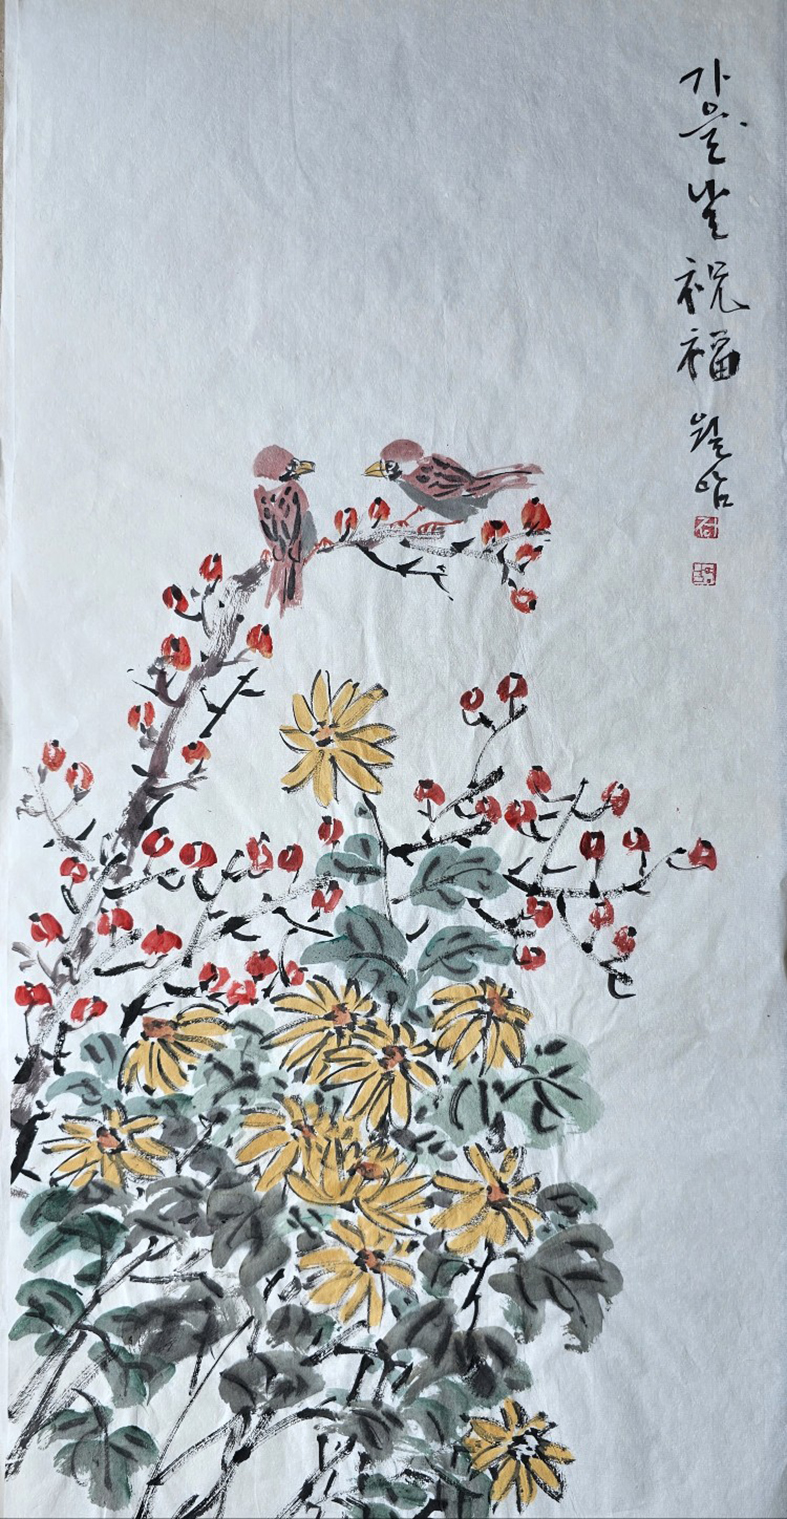 가을날 祝福